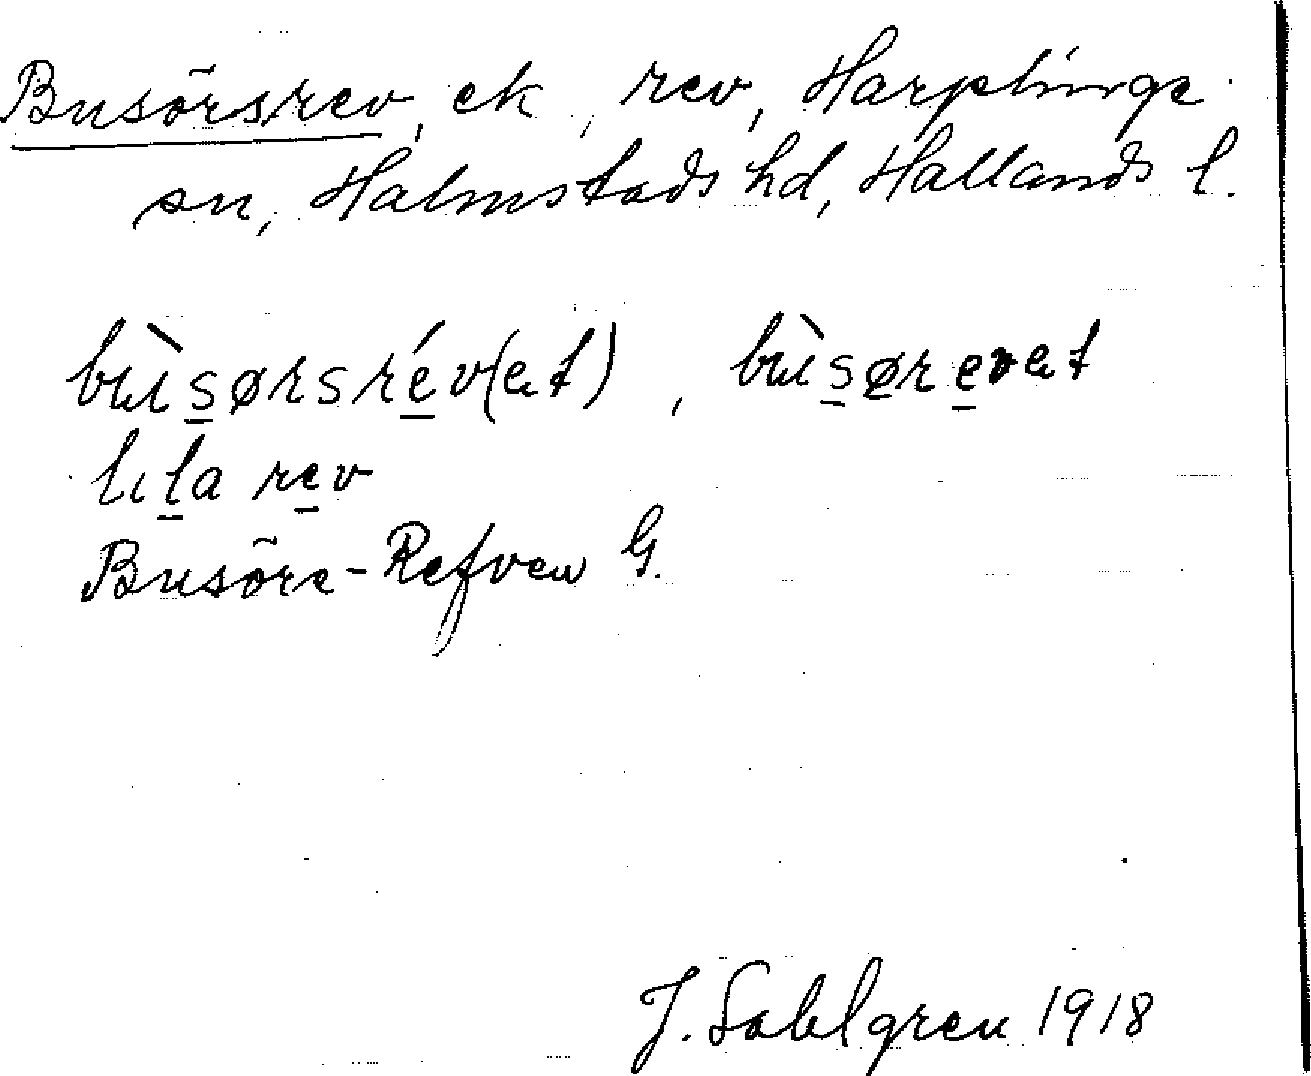 Busörsrev, ek, rev, Harplinge
sn, Halmstads hd, Hallands l.
bùsørsrév(et), bùsørevet
lila rev
Busöre-Refven G.
J. Sahlgren 1918